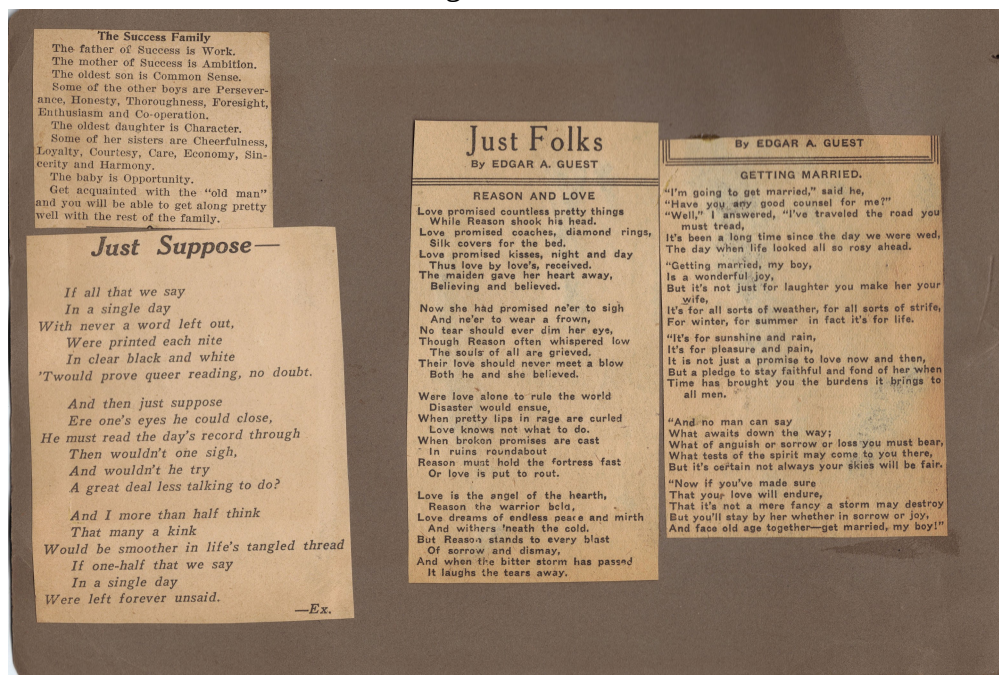 The Success Family
The father of Success is Work.
The mother of Success is Ambition.
The oldest son is Common Sense.
Some of the other boys are Persever-
ance, Honesty, Thoroughness, Foresight,
Enthusiasm and Co-operation.
The oldest daughter is Character.
Some of her sisters are Cheerfulness,
Loyalty, Courtesy, Care, Economy, Sin-
cerity and Harmony.
The baby is Opportunity.
Get acquainted with the "old man"
and you will be able to get along pretty
well with the rest of the family.
Just Suppose—
If all that we say
In a single day
With never a word left out,
Were printed each nite
In clear black and white
'Twould prove queer reading, no doubt.
And then just suppose
Ere one's eyes he could close,
He must read the day's record through
Then wouldn't one sigh,
And wouldn't he try
A great deal less talking to do?
And I more than half think
That many a kink
Would be smoother in life's tangled thread
If one-half that we say
In a single day
Were left forever unsaid.
—Ex.
Just Folks
By EDGAR A. GUEST
REASON AND LOVE
Love promised countless pretty things
While Reason shook his head.
Love promised coaches, diamond rings,
Silk covers for the bed.
Love promised kisses, night and day
Thus love by love's, received.
The maiden gave her heart away,
Believing and believed.
Now she had promised ne'er to sigh
And ne'er to wear a frown,
No tear should ever dim her eye,
Though Reason often whispered low
The souls of all are grieved.
Their love should never meet a blow
Both he and she believed.
Were love alone to rule the world
Disaster would ensue,
When pretty lips in rage are curled
Love knows not what to do.
When broken promises are cast
In ruins roundabout
Reason must hold the fortress fast
Or love is put to rout.
Love is the angel of the hearth,
Reason the warrior bold,
Love dreams of endless peace and mirth
And withers 'neath the cold.
But Reason stands to every blast
Of sorrow and dismay,
And when the bitter storm has passed
It laughs the tears away.
By EDGAR A. GUEST
GETTING MARRIED.
"I'm going to get married," said he,
"Have you any good counsel for me?"
"Well," I answered, "I've traveled the road you
must tread,
It's been a long time since the day we were wed,
The day when life looked all so rosy ahead.
"Getting married, my boy,
Is a wonderful joy,
But it's not just for laughter you make her your
wife,
It's for all sorts of weather, for all sorts of strife,
For winter, for summer in fact it's for life.
"It's for sunshine and rain,
It's for pleasure and pain,
It is not just a promise to love now and then,
But a pledge to stay faithful and fond of her when
Time has brought you the burdens it brings to
all men.
"And no man can say
What awaits down the way;
What of anguish or sorrow or loss you must bear,
What tests of the spirit may come to you there,
But it's certain not always your skies will be fair.
"Now if you've made sure
That your love will endure,
That it's not a mere fancy a storm may destroy
But you'll stay by her whether in sorrow or joy,
And face old age together—get married, my boy!"